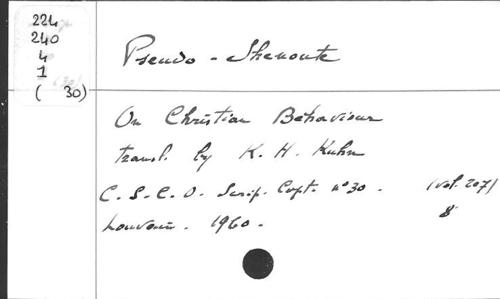 224
240
4
1
( 30)
Pseudo - Shenoute
On Christian Behaviour
transl. by K. H. Kuhn
C. S. C. O. Scrip. Copt. n°30. (vol. 207)
Louvain. 1960. 8